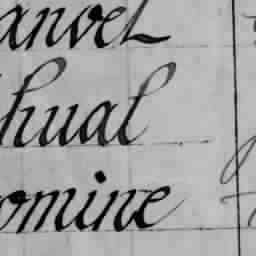 anvel
hual
omine